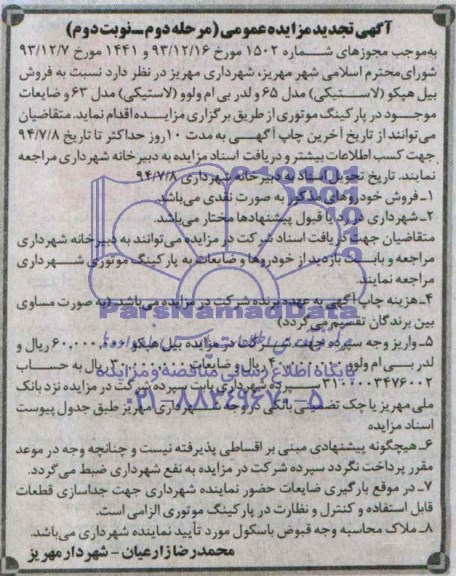 آگهی تجدید مزایده عمومی (مرحله دوم ـ نوبت دوم)
به‌موجب مجوزهای شماره ۱۵۰۲ مورخ ۹۳/۱۲/۱۶ و ۱۴۴۱ مورخ ۹۳/۱۲/۷
شورای‌محترم اسلامی شهر مهریز، شهرداری مهریز در نظر دارد نسبت به فروش
بیل هپکو (لاستیکی) مدل ۶۵ و لدر بی ام ولوو (لاستیکی) مدل ۶۳ و ضایعات
موجود در پارکینگ موتوری از طریق برگزاری مزایده اقدام نماید. متقاضیان
می‌توانند از تاریخ آخرین چاپ آگهی به مدت ۱۰ روز حداکثر تا تاریخ ۹۴/۷/۸
جهت کسب اطلاعات بیشتر و دریافت اسناد مزایده به دبیرخانه شهرداری مراجعه
نمایند. تاریخ تحویل اسناد به دبیرخانه شهرداری ۹۴/۷/۸
۱ـ فروش خودروهای مذکور به صورت نقدی می‌باشد.
۲ـ شهرداری در رد یا قبول پیشنهادها مختار می‌باشد.
متقاضیان جهت دریافت اسناد شرکت در مزایده می‌توانند به دبیرخانه شهرداری
مراجعه و بابت بازدید از خودروها و ضایعات به پارکینگ موتوری شهرداری
مراجعه نمایند.
۴ـ هزینه چاپ آگهی به عهده برنده شرکت در مزایده می‌باشد. (به صورت مساوی
بین برندگان تقسیم می‌گردد)
۵ـ واریز وجه سپرده جهت شرکت در مزایده بیل هپکو ۶۰,۰۰۰,۰۰۰ ریال و
لدر بی ام ولوو ریال و ضایعات ریال به حساب
۳۱۰۰۰۰۳۴۷۶۰۰۲ سپرده شهرداری بابت سپرده شرکت در مزایده نزد بانک
ملی مهریز یا چک تضمینی بانکی در وجه شهرداری مهریز طبق جدول پیوست
اسناد مزایده
۶ـ هیچگونه پیشنهادی مبنی بر اقساطی پذیرفته نیست و چنانچه وجه در موعد
مقرر پرداخت نگردد سپرده شرکت در مزایده به نفع شهرداری ضبط می‌گردد.
۷ـ در موقع بارگیری ضایعات حضور نماینده شهرداری جهت جداسازی قطعات
قابل استفاده و کنترل و نظارت در پارکینگ موتوری الزامی است.
۸ـ ملاک محاسبه وجه قبوض باسکول مورد تأیید نماینده شهرداری می‌باشد.
محمدرضا زارعیان - شهردار مهریز
ParsNamadData
پایگاه اطلاع رسانی مناقصه و مزایده
۰۲۱-۸۸۳۴۹۶۷۰-۵